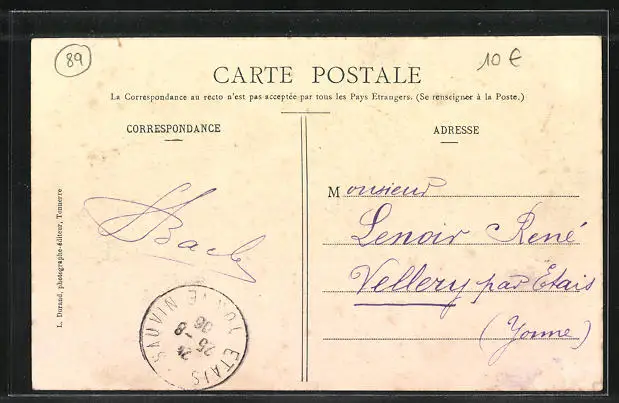 89
10 €
CARTE POSTALE
La Correspondance au recto n'est pas acceptée par tous les Pays Etrangers. (Se renseigner à la Poste.)
CORRESPONDANCE
ADRESSE
L. Durand, photographe-éditeur, Tonnerre
Monsieur
Lenoir René
Vellery par Etais
(Yonne)
ETAIS
25 -8
06